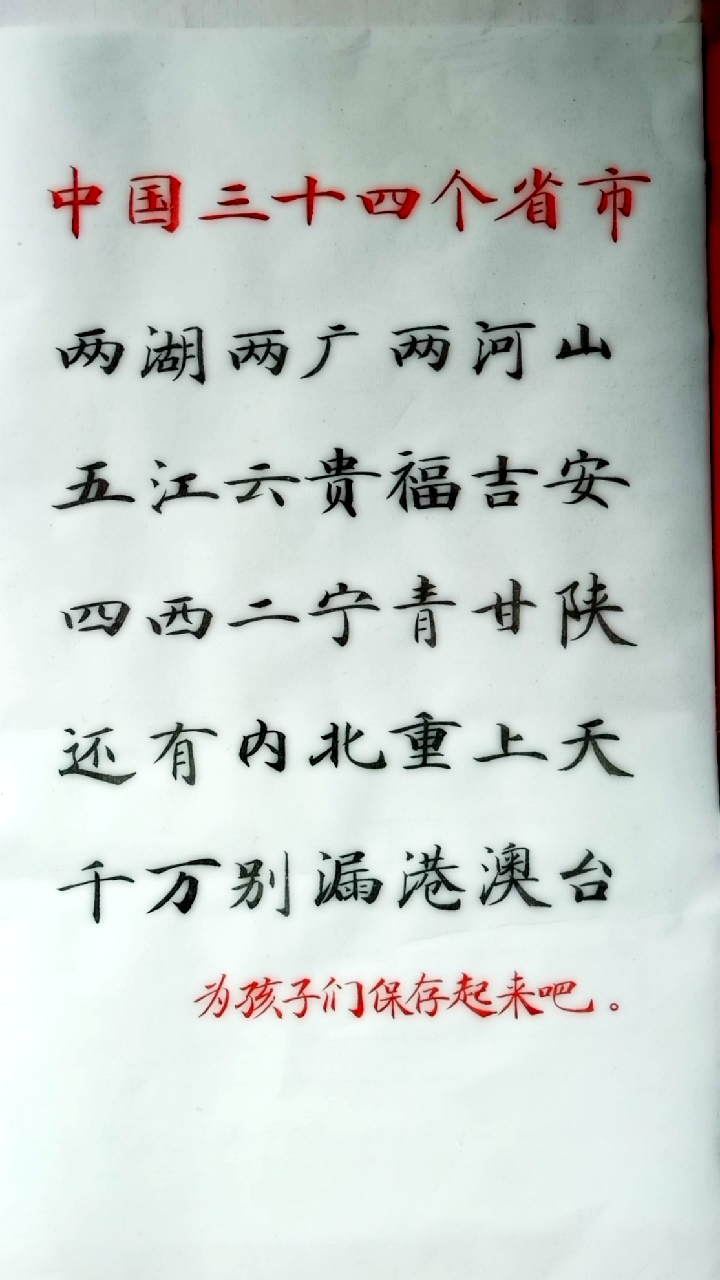 中国三十四个省市
两湖两广两河山
五江云贵福吉安
四西二宁青甘陕
还有内北重上天
千万别漏港澳台
为孩子们保存起来吧。